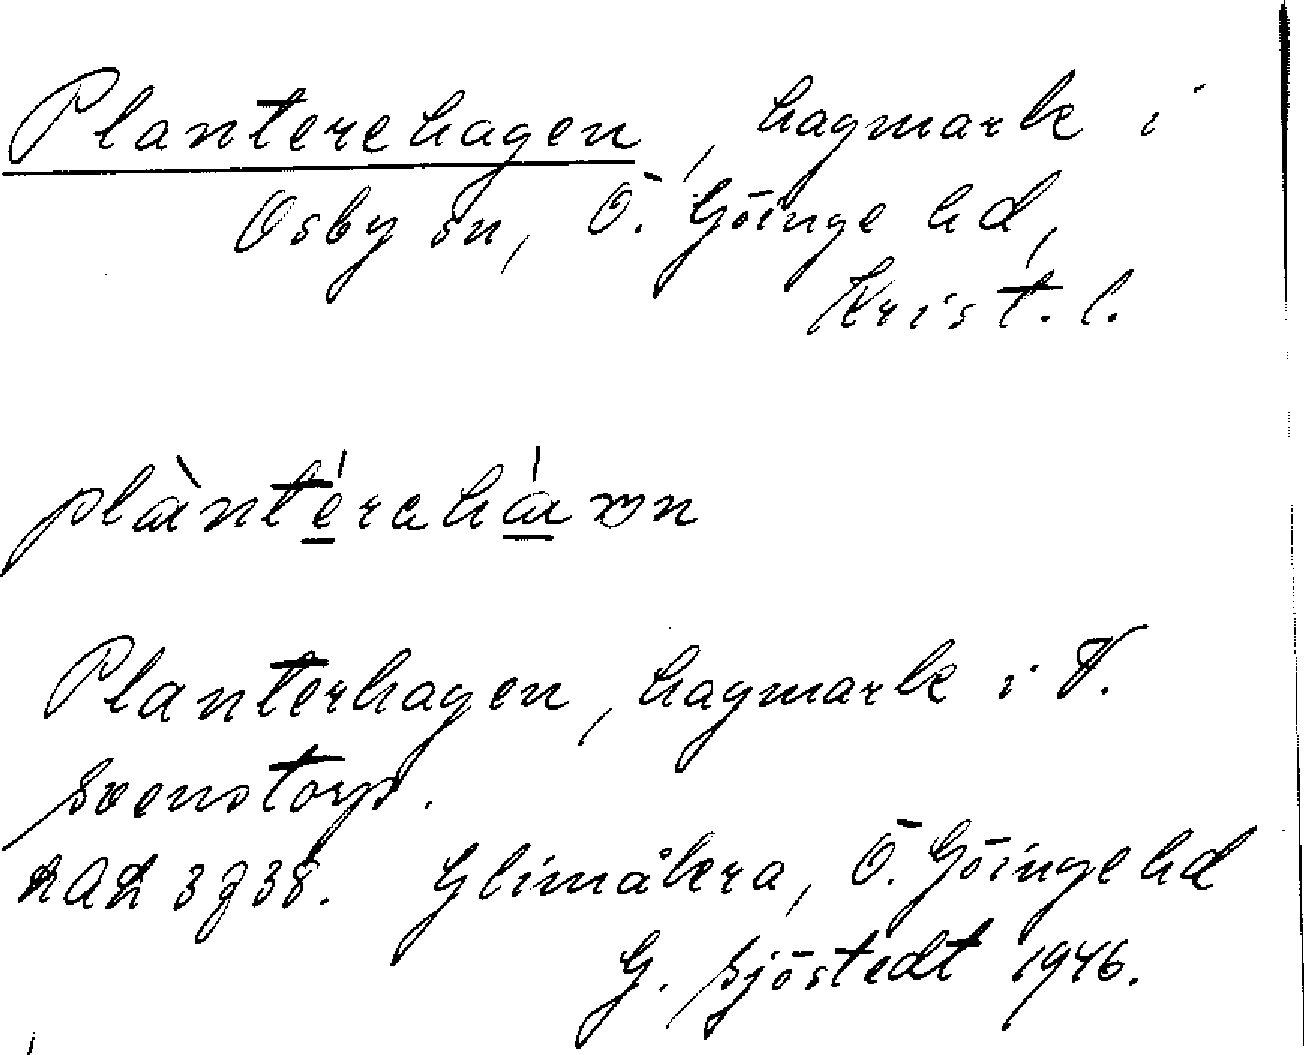 Planterehagen, hagmark i
Osby sn, Ö. Göinge hd,
Krist. l.
Planterhagen, hagmark i V.
Svenstorp.
Glimåkra, Ö. Göinge hd
G. Sjöstedt 1946.